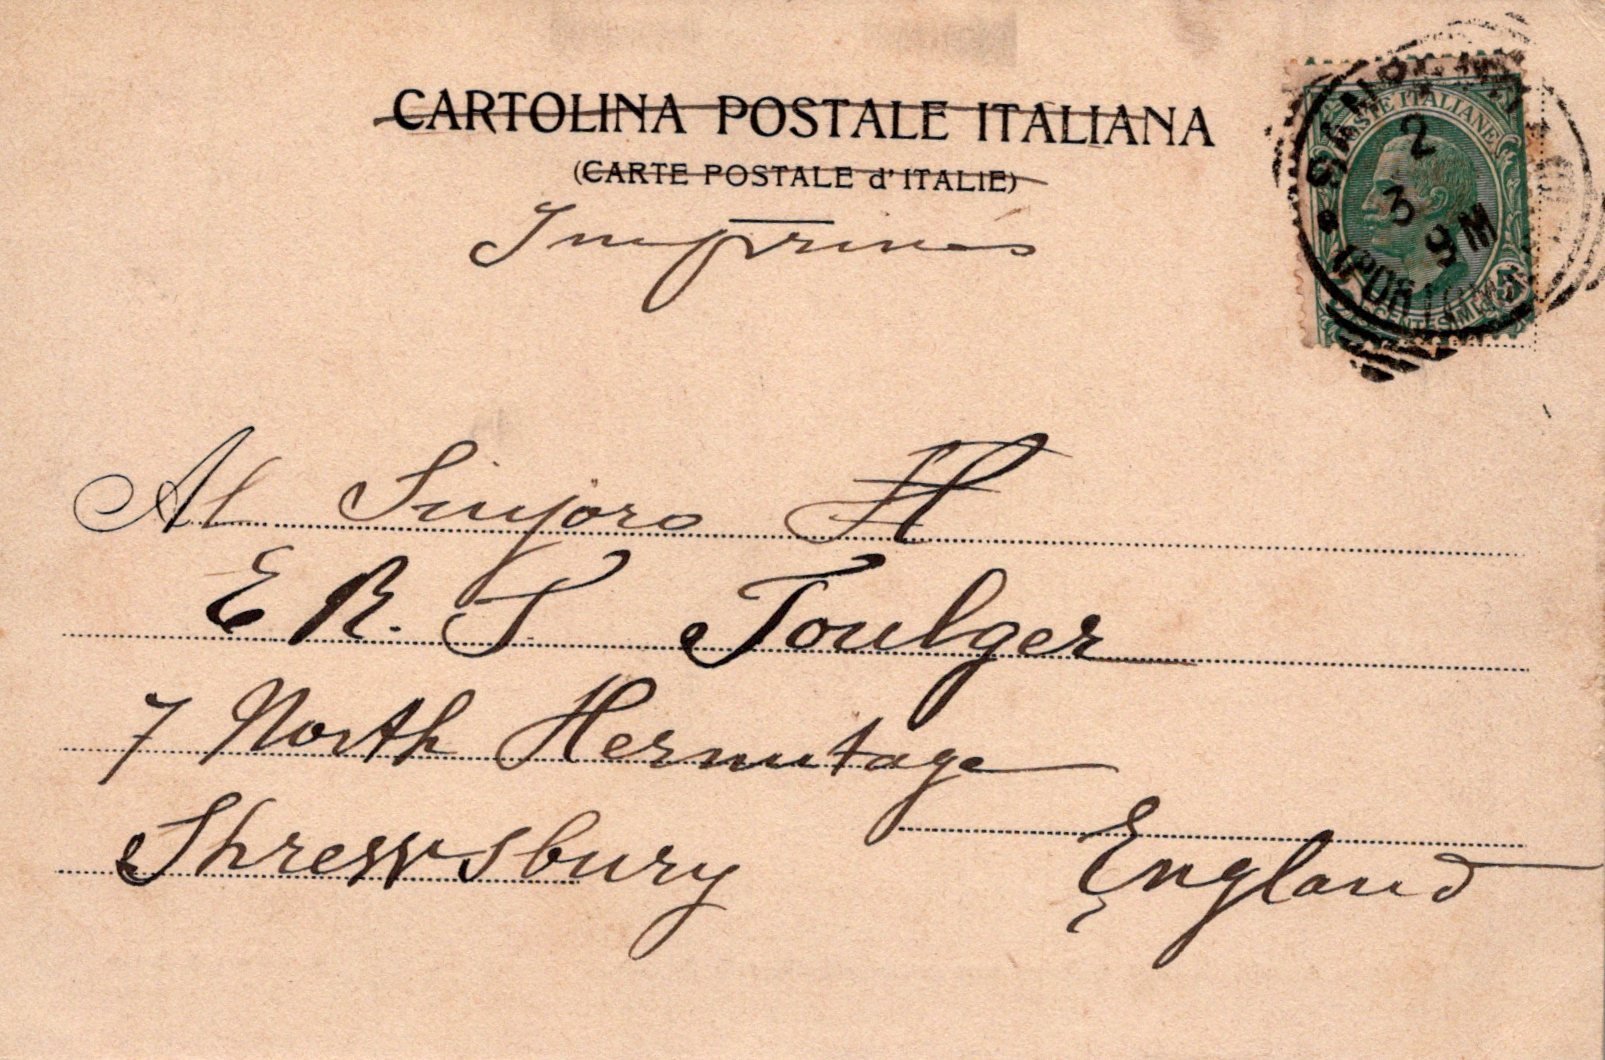 CARTOLINA POSTALE ITALIANA
(CARTE POSTALE d'ITALIE)
Imprimés
POSTE ITALIANE
2
3
9 M
(PORTO
CENTESIMI 5
Al Sinjoro H
E R. S Foulger
7 North Hermitage
Shrewsbury England